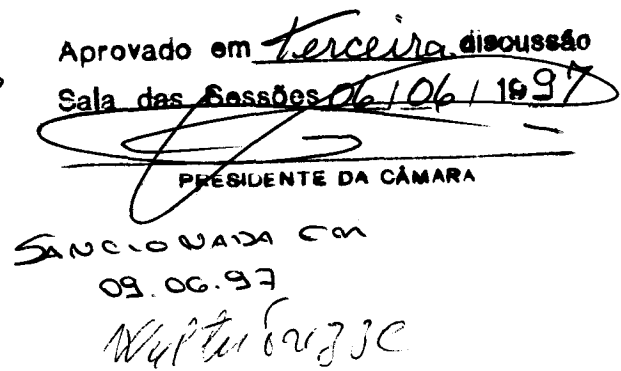 Aprovado em terceira discussão
Sala das Sessões 06/06/1997
PRESIDENTE DA CÂMARA
SANCIONADA EM
09.06.97